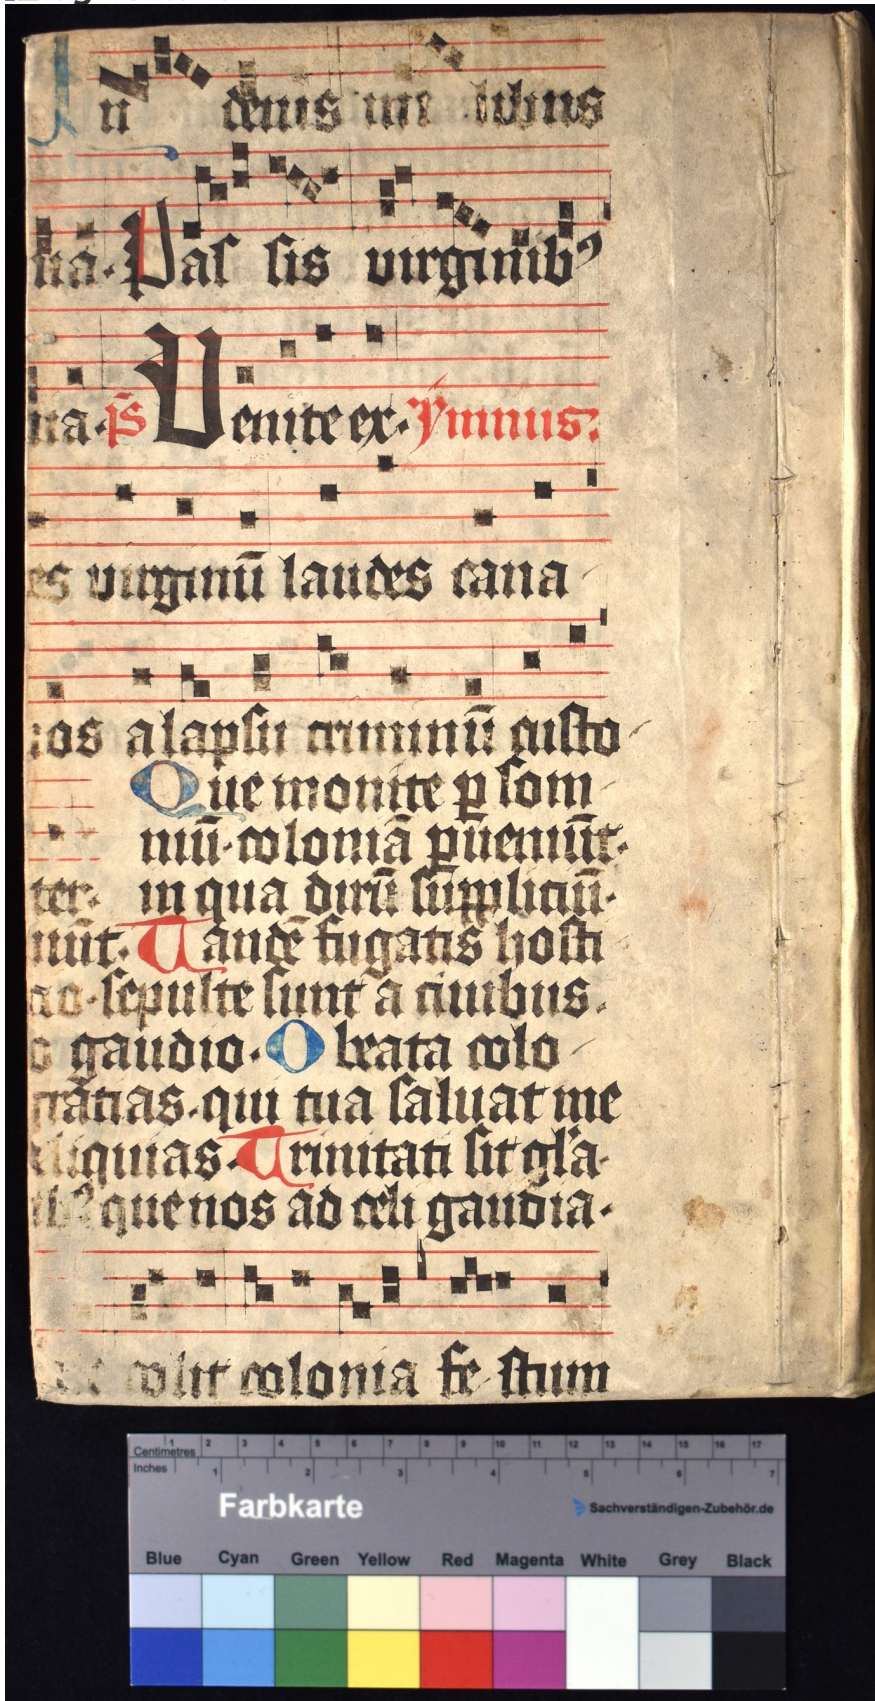 In denis milibus
na. Pas sis virginibꝰ
na. p̄s Venite ex. Ymnus.
es virginū laudes cana
ros a lapsu criminū custo
Que monite ꝑ som
niū. coloniā ꝑueniūt.
ter. in qua dirū suppliciū.
nūt. Tandē fugatis hosti
sepulte sunt a ciuibus.
o gaudio. O beata colo
gratias. qui tua saluat me
eliquias. Trinitati sit gl'a
ibꝰ que nos ad celi gaudia.
colit colonia fe stum
Centimetres 1 2 3 4 5 6 7 8 9 10 11 12 13 14 15 16 17
Inches 1 2 3 4 5 6 7
Farbkarte
Sachverständigen-Zubehör.de
Blue Cyan Green Yellow Red Magenta White Grey Black